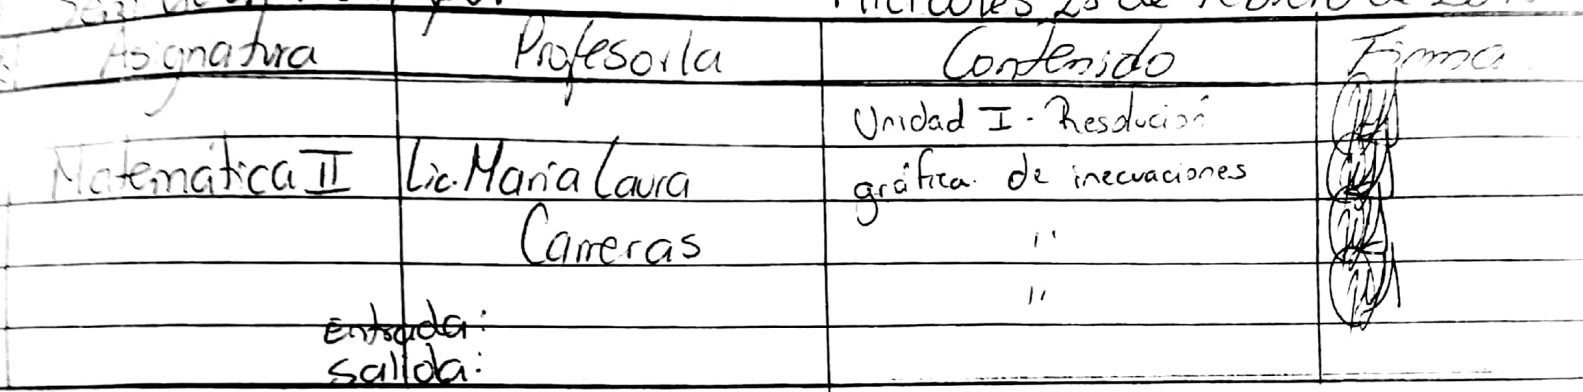 Miércoles 23 de Febrero de
Asignatura Profesor/a Contenido Firma
Unidad I - Resolución
Matemática II Lic. María Laura gráfica de inecuaciones
Carreras "
"
Entrada:
Salida: